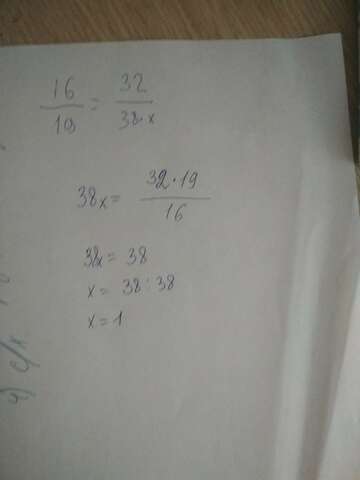 16/19 = 32/38x
38x = 32·19/16
38x = 38
x = 38:38
x = 1